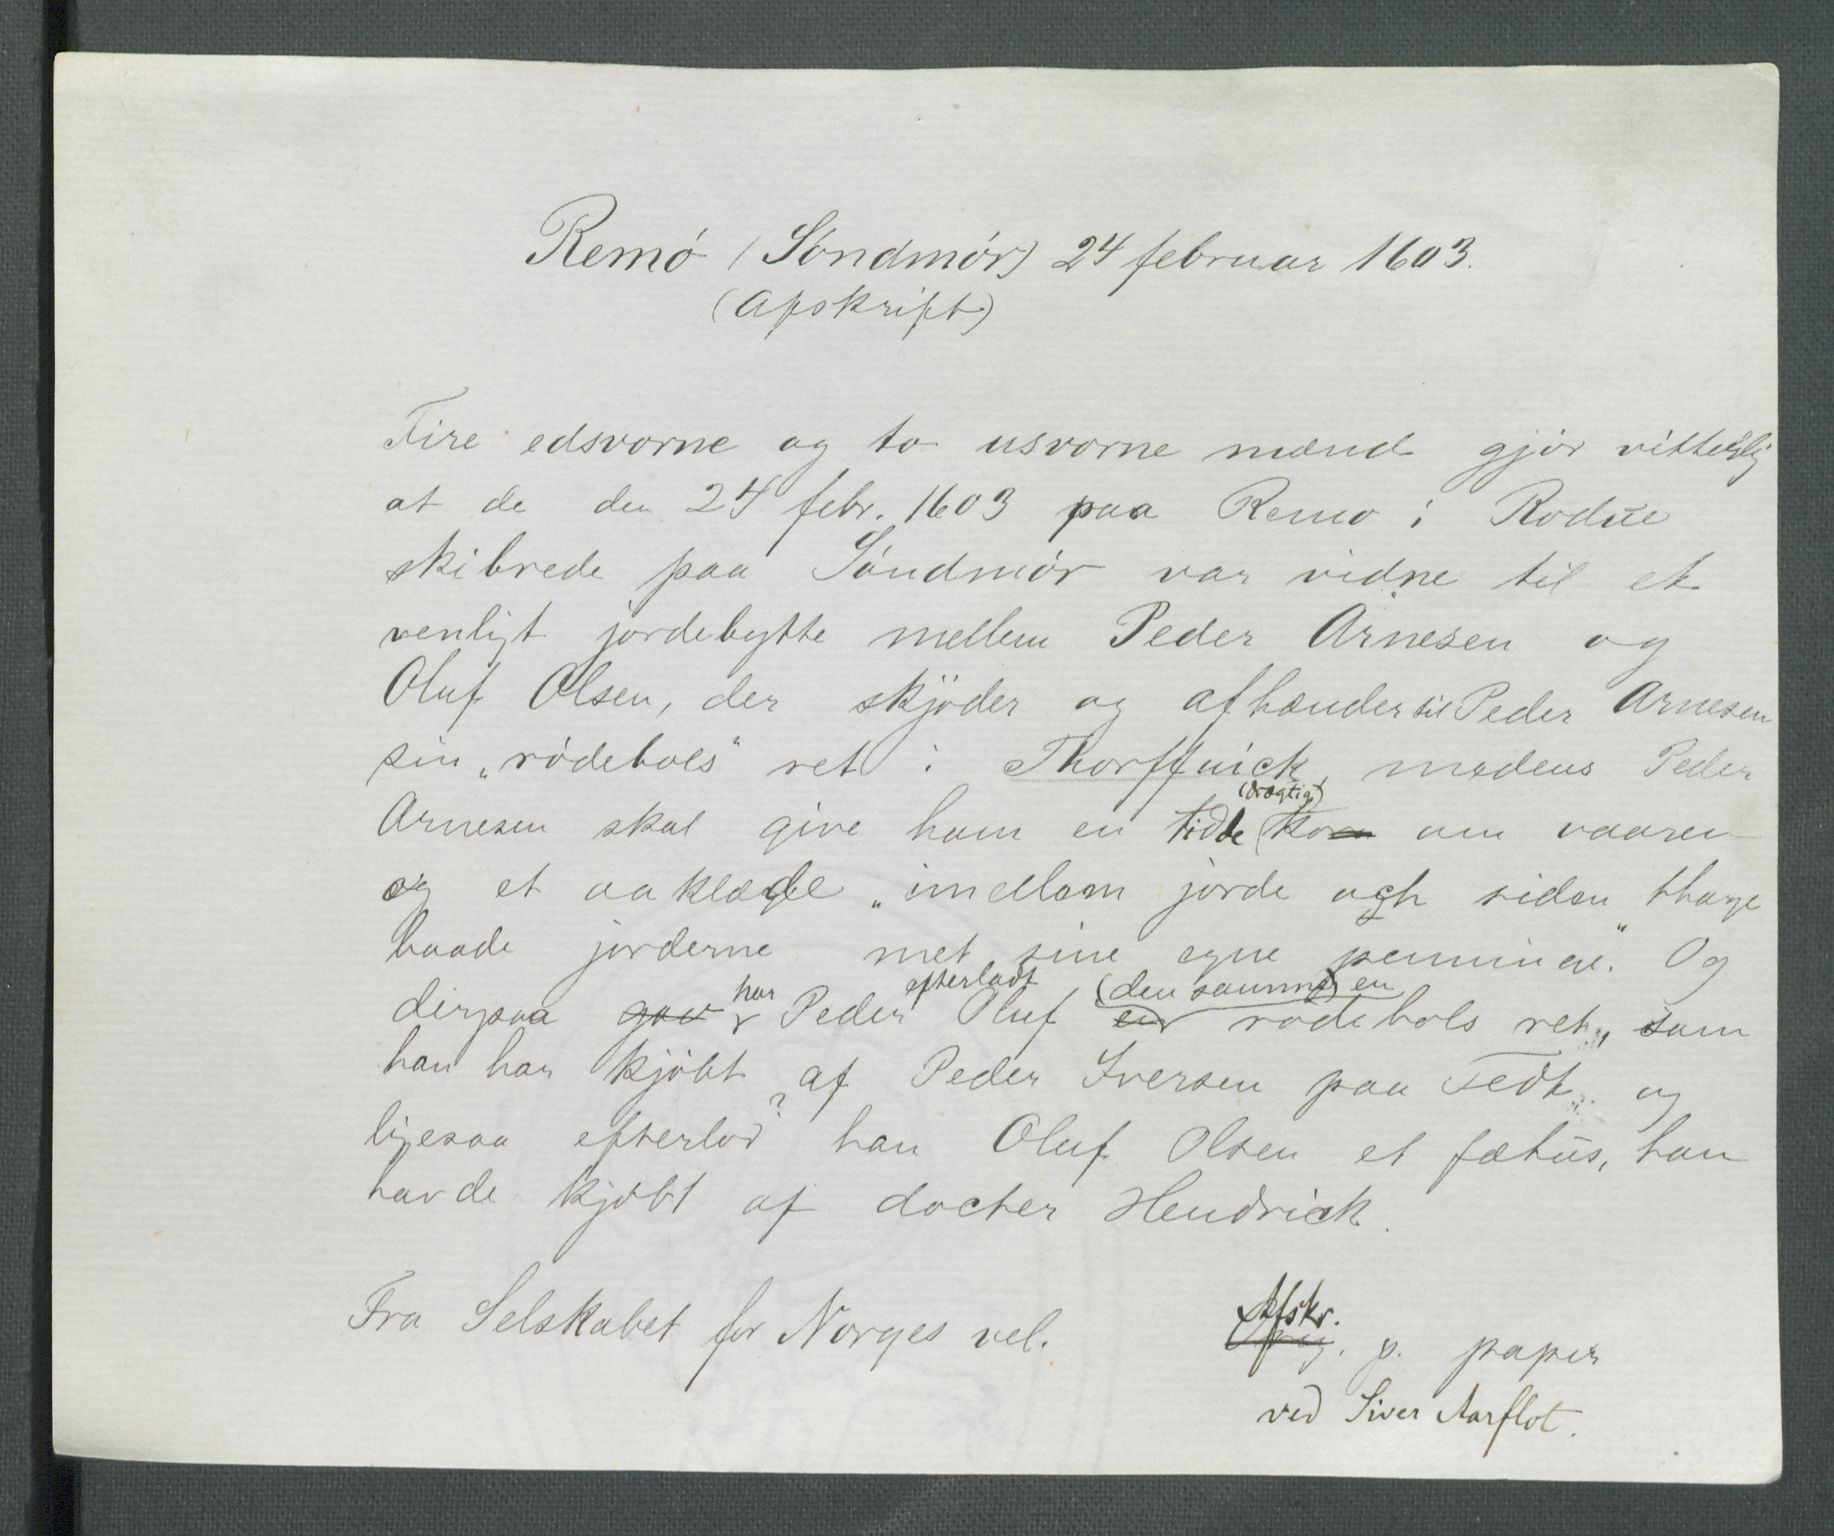 Remó (Söndmör) 24 februar 1603.
(Afskrift)
Fire edsvorne og to usvorne mænd gjör vitterlig
at de den 24 febr. 1603 paa Remo i Rodüe
skibrede paa Söndmör var vidne til et
venligt jordebytte mellem Peder Arnesen og
Oluf Olsen, der skjöder og afhænder til Peder Arnesen
sin „rödebols" ret i Thorffuick, medens Peder
(drægtig)
Arnesen skal give ham en tidde (korn om vaaren
og et aaklæde „imellom jorde och siden thage
baade jorderne met sine egne penninge." Og
har efterladt (den samme) en
derpaa gav Peder Oluf en rödebols ret, som
han har kjöbt af Peder Iversen paa Tedt, og
ligesaa efterlod han Oluf Olsen et fæhüs, han
havde kjöbt af docter Hendrick.
Fra Selskabet for Norges vel.
Afskr.
Orig. p. papir
ved Siver Aarflot.